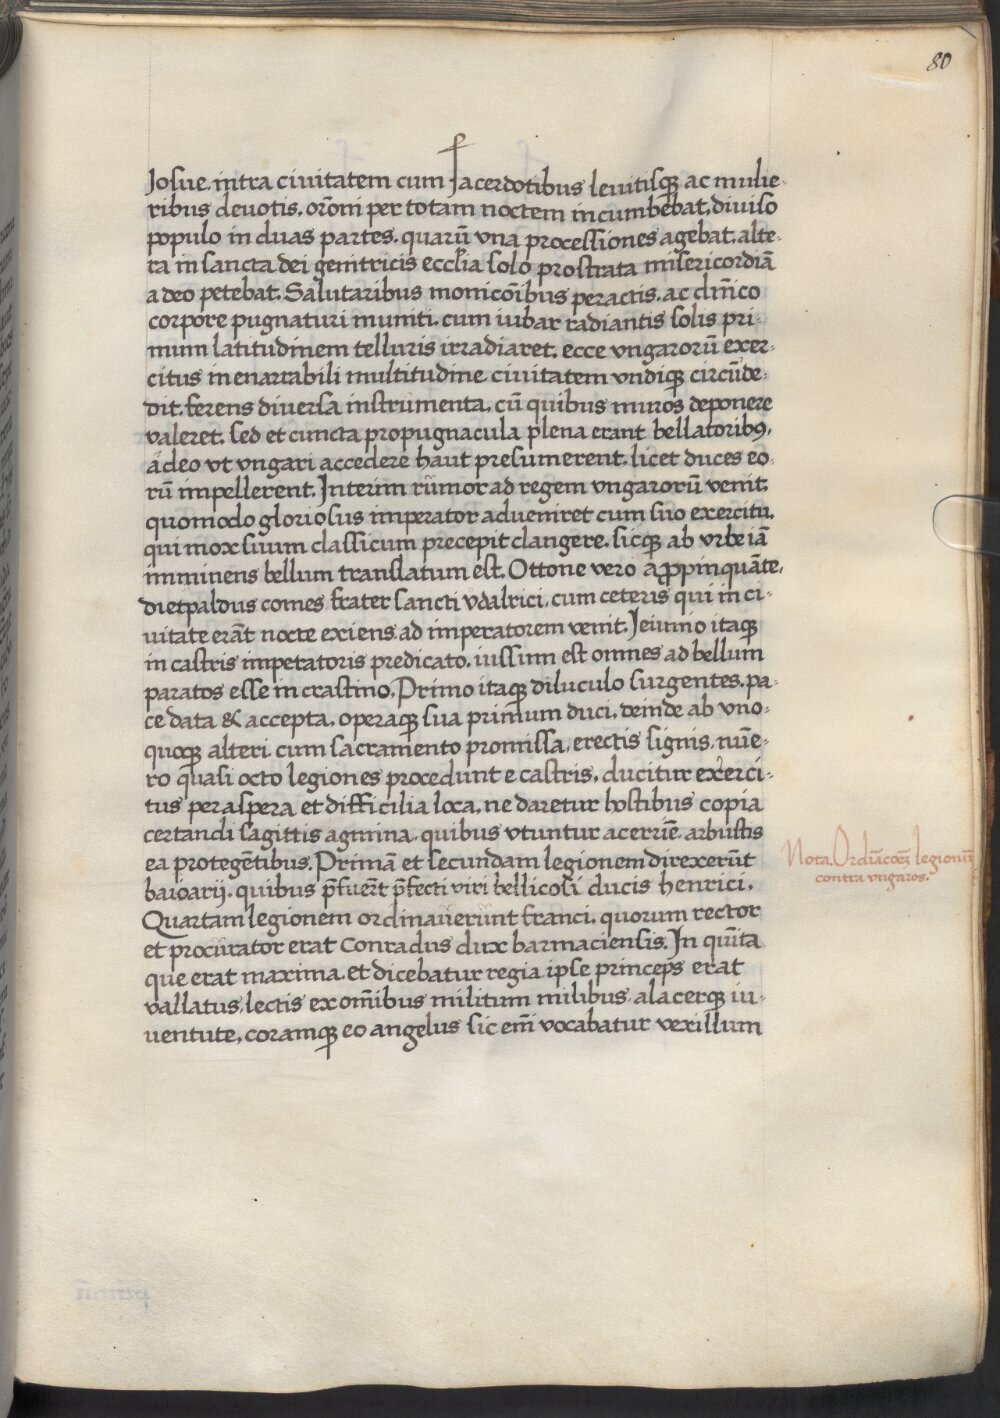 80
Iosue. intra ciuitatem cum sacerdotibus leuitisq; ac mulie-
ribus deuotis. orōni per totam noctem incumbebat, diuiso
populo in duas partes. quarū vna processiones agebat. alte-
ra in sancta dei genitricis ecclīa solo prostrata misericordiā
a deo petebat. Salutaribus monicōibus peractis. ac dn̄ico
corpore pugnaturi muniti. cum iubar radiantis solis pri-
mum latitudinem telluris irradiaret. ecce vngarorū exer-
citus inenarrabili multitudine ciuitatem vndiq; circūde-
dit. ferens diuersa instrumenta. cū quibus muros deponere
valeret. sed et cuncta propugnacula plena erant bellatoribꝰ,
adeo vt vngari accedere haut presumerent. licet duces eo-
rū impellerent. Interim rumor ad regem vngarorū venit.
quomodo gloriosus imperator adueniret cum suo exercitu.
qui mox suum classicum precepit clangere. sicq; ab vrbe iā
imminens bellum translatum est. Ottone vero appinquāte,
dietpaldus comes frater sancti vdalrici. cum ceteris qui in ci-
uitate erāt nocte exiens ad imperatorem venit. Ieiunio itaq;
in castris impetatoris predicato. iussum est omnes ad bellum
paratos esse in crastino. Primo itaq; diluculo surgentes. pa-
ce data & accepta, operaq; sua primum duci, deinde ab vno-
quoq; alteri cum sacramento promissa, erectis signis. nūe-
ro quasi octo legiones procedunt e castris, ducitur exerci-
tus per aspera et difficilia loca, ne daretur hostibus copia
certandi sagittis agmina. quibus vtuntur acerrīe arbustis
ea protegētibus. Primā et secundam legionem direxerūt
baioarij. quibus p̄fuer̄t p̄fecti viri bellicosi ducis henrici.
Quartam legionem ordinauerunt franci. quorum rector
et procurator erat Conradus dux barmaciensis. In quīta
que erat maxima et dicebatur regia ipse princeps erat
vallatus, lectis ex om̄ibus militum milibus alacerq; iu-
uentute, coramq; eo angelus sic em̄ vocabatur vexillum
Nota. Ordīacōeꝫ legionū
contra vngaros.